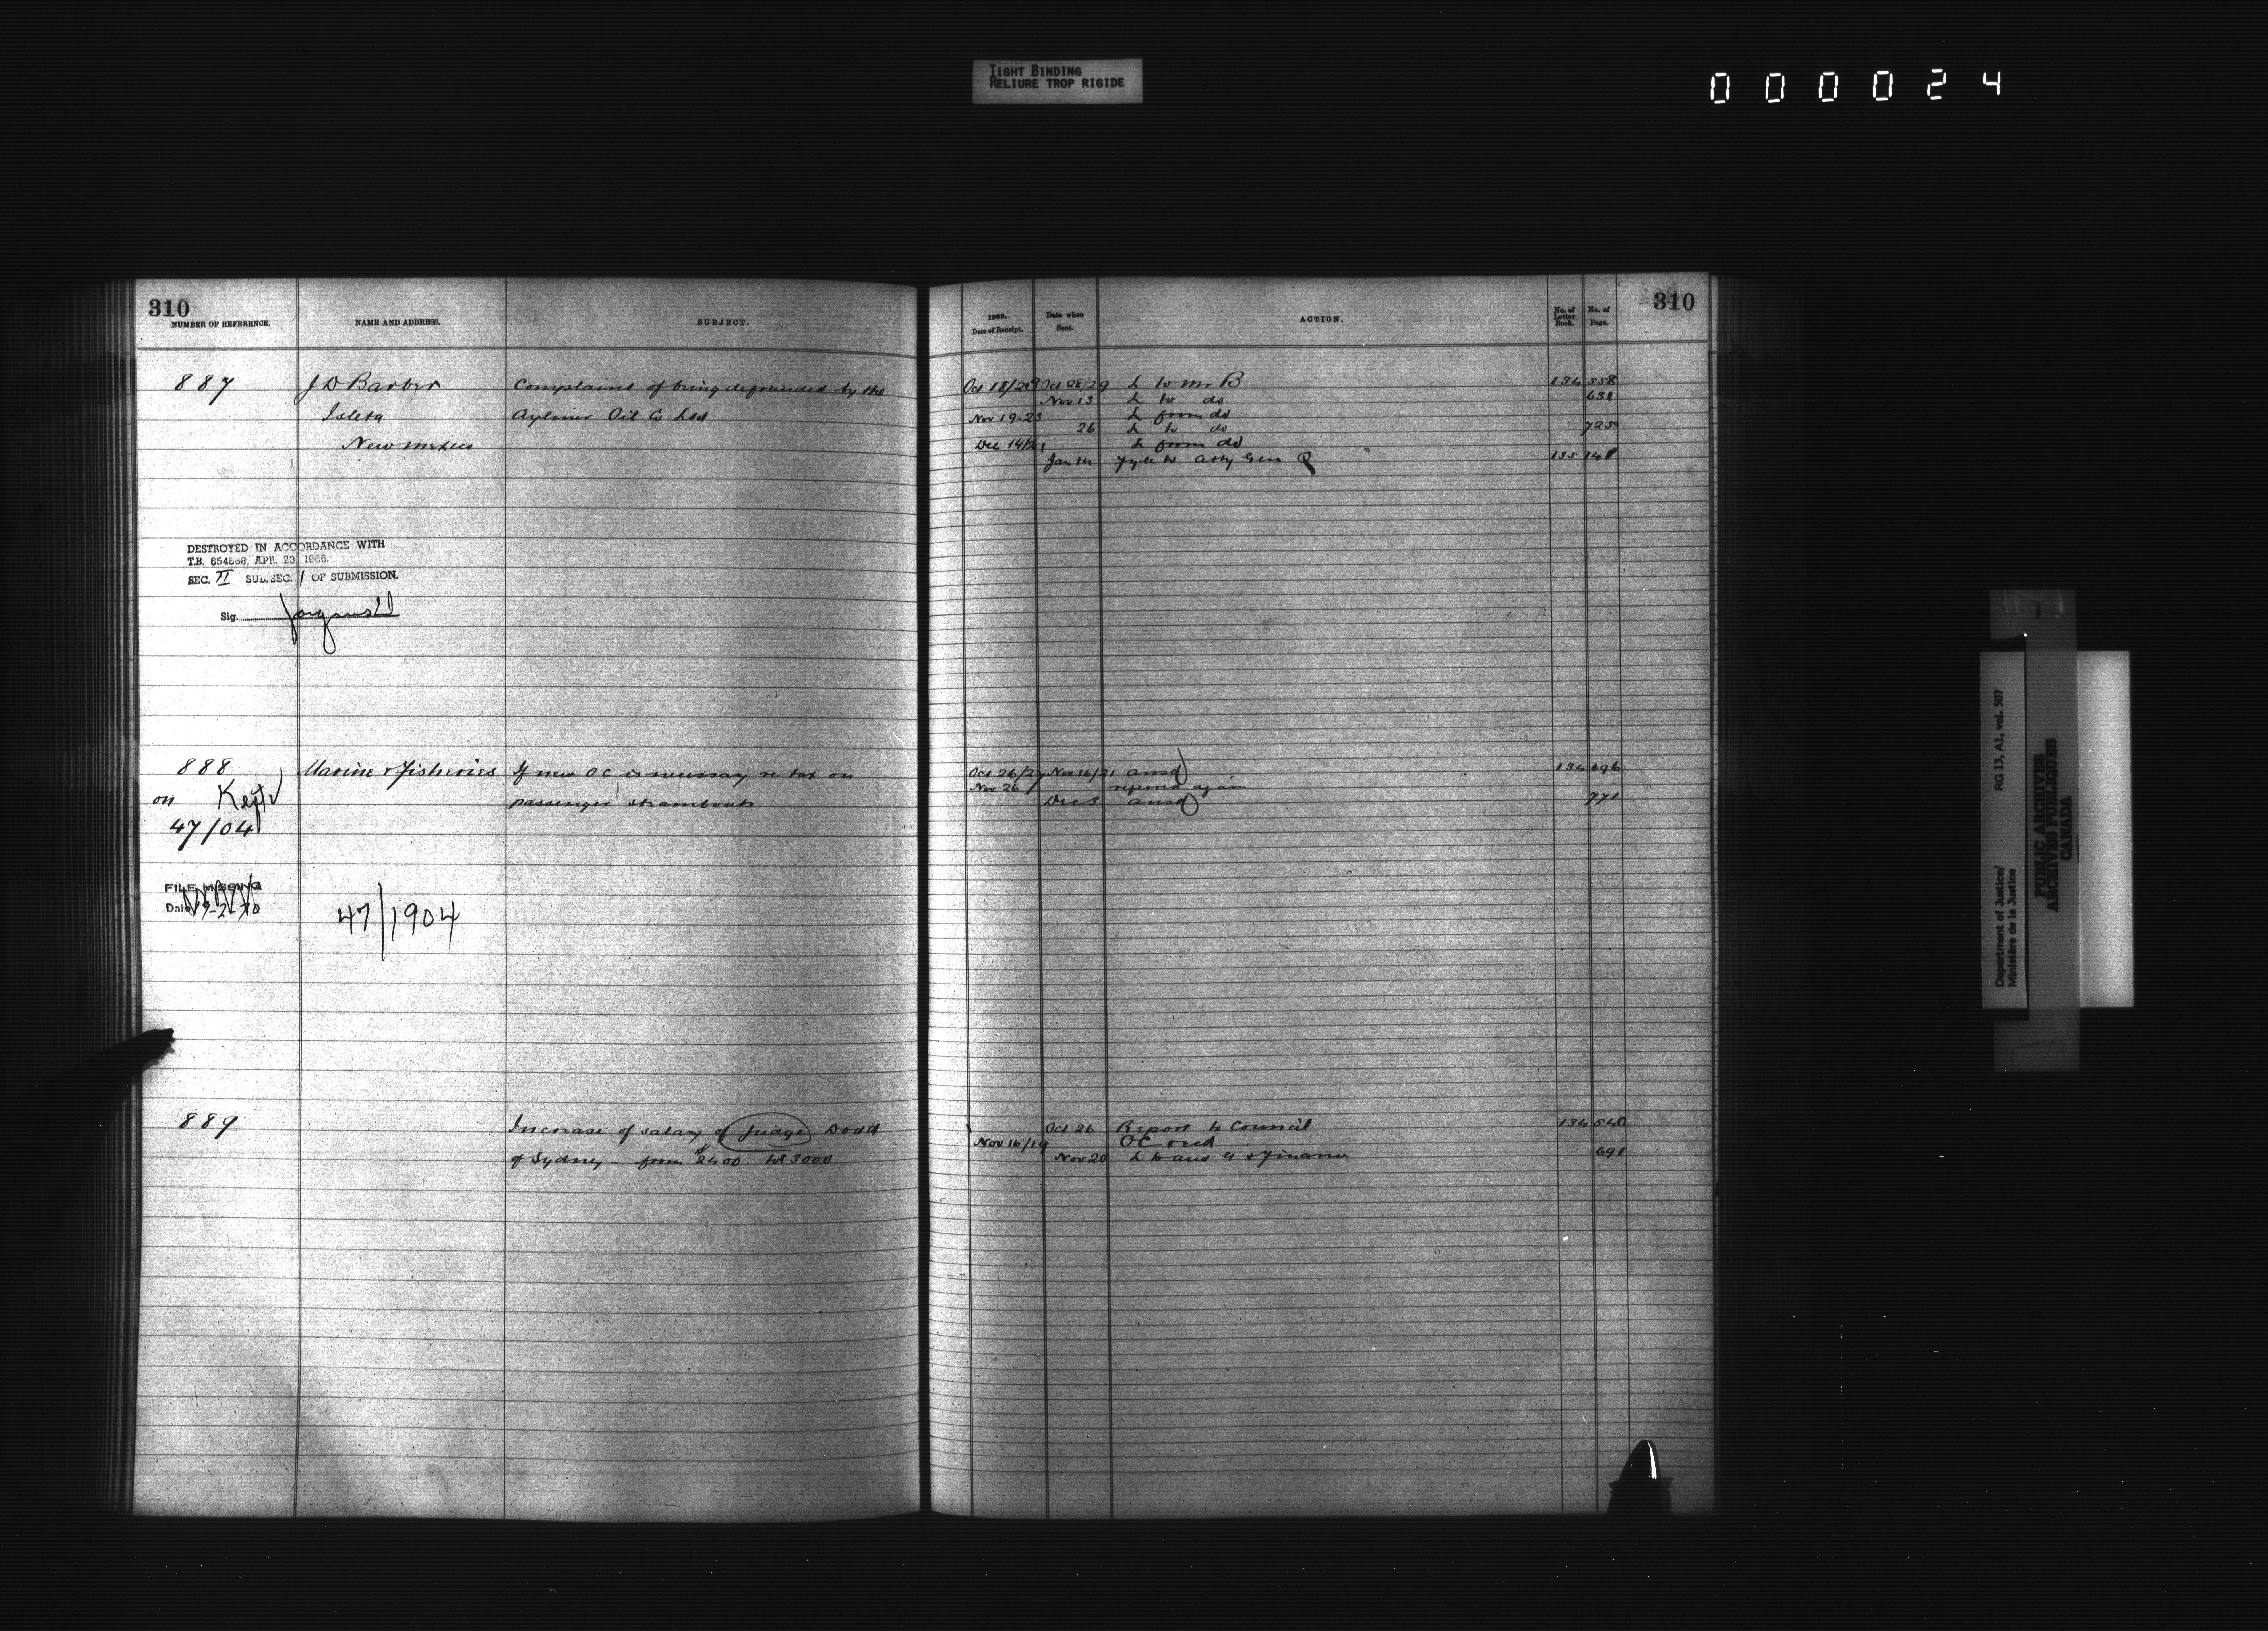 TIGHT BINDING
RELIURE TROP RIGIDE
000024
310
NUMBER OF REFERENCE.
NAME AND ADDRESS.
SUBJECT.
887
J D Barber
Complains of being defrauded by the
Isleta
Aylmer Oil Co Ltd
New Mexico
DESTROYED IN ACCORDANCE WITH
T.B. 654568, APR. 23, 1966.
SEC. II SUB. SEC. 1 OF SUBMISSION.
Sig.
888
Marine & Fisheries
If new OC is necessary re tax on
on Kept
passenger steamboats
47/04
FILE MISSING
Date 19-2-70
47/1904
889
Increase of salary of Judge Dodd
of Sydney from $2400 to $3000
310
1903.
Date of Receipt.
Date when
Sent.
ACTION.
No. of
Letter
Book.
No. of
Page.
Oct 18/28 Oct 28/29 L to Mr B 134 558
Nov 13 L to do 631
Nov 19-23 L from do
26 L to do 725
Dec 14/21 L from do
Jan 14 to Atty Gen Q 135 141
Oct 26/27 Nov 16/21 ansd 134 696
Nov 26 referred again
Dec 5 ansd 771
Oct 26 Report to Council 134 540
Nov 16/19 OC recd
Nov 20 L to Aud G & Finance 691
Department of Justice/
Ministère de la Justice
RG 13, A1, vol. 507
PUBLIC ARCHIVES
ARCHIVES PUBLIQUES
CANADA